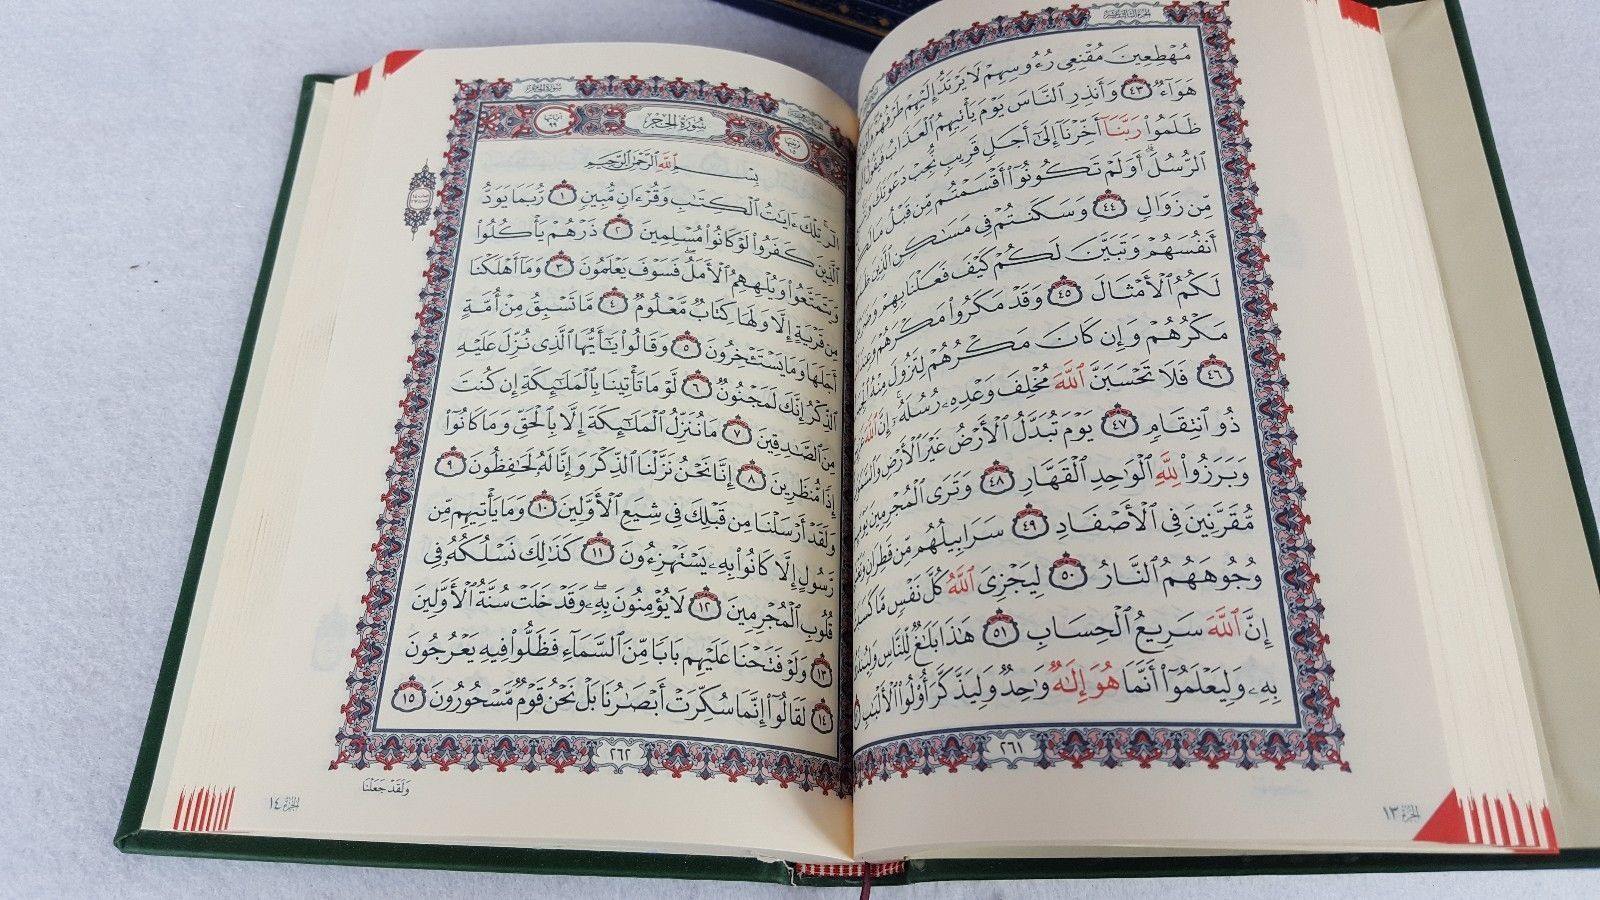 مُهْطِعِينَ مُقْنِعِى رُءُوسِهِمْ لَا يَرْتَدُّ إِلَيْهِمْ طَرْفُهُمْ
هَوَآءٌ ٤٣ وَأَنذِرِ ٱلنَّاسَ يَوْمَ يَأْتِيهِمُ ٱلْعَذَابُ فَيَقُولُ
ظَلَمُوا۟ رَبَّنَآ أَخِّرْنَآ إِلَىٰٓ أَجَلٍ قَرِيبٍ نُّجِبْ دَعْوَتَكَ
ٱلرُّسُلَ ۗ أَوَلَمْ تَكُونُوٓا۟ أَقْسَمْتُم مِّن قَبْلُ مَا لَكُم
مِّن زَوَالٍ ٤٤ وَسَكَنتُمْ فِى مَسَٰكِنِ ٱلَّذِينَ
أَنفُسَهُمْ وَتَبَيَّنَ لَكُمْ كَيْفَ فَعَلْنَا بِهِمْ
لَكُمُ ٱلْأَمْثَالَ ٤٥ وَقَدْ مَكَرُوا۟ مَكْرَهُمْ وَعِندَ
مَكْرُهُمْ وَإِن كَانَ مَكْرُهُمْ لِتَزُولَ مِنْهُ
٤٦ فَلَا تَحْسَبَنَّ ٱللَّهَ مُخْلِفَ وَعْدِهِۦ رُسُلَهُۥٓ ۗ إِنَّ ٱللَّهَ
ذُو ٱنتِقَامٍ ٤٧ يَوْمَ تُبَدَّلُ ٱلْأَرْضُ غَيْرَ ٱلْأَرْضِ
وَبَرَزُوا۟ لِلَّهِ ٱلْوَٰحِدِ ٱلْقَهَّارِ ٤٨ وَتَرَى ٱلْمُجْرِمِينَ
مُّقَرَّنِينَ فِى ٱلْأَصْفَادِ ٤٩ سَرَابِيلُهُم مِّن قَطِرَانٍ
وُجُوهَهُمُ ٱلنَّارُ ٥٠ لِيَجْزِىَ ٱللَّهُ كُلَّ نَفْسٍ مَّا
إِنَّ ٱللَّهَ سَرِيعُ ٱلْحِسَابِ ٥١ هَٰذَا بَلَٰغٌ لِّلنَّاسِ
بِهِۦ وَلِيَعْلَمُوٓا۟ أَنَّمَا هُوَ إِلَٰهٌ وَٰحِدٌ وَلِيَذَّكَّرَ أُو۟لُوا۟ ٱلْأَلْبَٰبِ
٢٦١
الجزء ١٣
سورة الحجر
سُورَةُ الحِجْر
بِسْمِ ٱللَّهِ ٱلرَّحْمَٰنِ ٱلرَّحِيمِ
الٓر ۚ تِلْكَ ءَايَٰتُ ٱلْكِتَٰبِ وَقُرْءَانٍ مُّبِينٍ ١ رُّبَمَا يَوَدُّ
ٱلَّذِينَ كَفَرُوا۟ لَوْ كَانُوا۟ مُسْلِمِينَ ٢ ذَرْهُمْ يَأْكُلُوا۟
وَيَتَمَتَّعُوا۟ وَيُلْهِهِمُ ٱلْأَمَلُ ۖ فَسَوْفَ يَعْلَمُونَ ٣ وَمَآ أَهْلَكْنَا
مِن قَرْيَةٍ إِلَّا وَلَهَا كِتَابٌ مَّعْلُومٌ ٤ مَّا تَسْبِقُ مِنْ أُمَّةٍ
أَجَلَهَا وَمَا يَسْتَـْٔخِرُونَ ٥ وَقَالُوا۟ يَٰٓأَيُّهَا ٱلَّذِى نُزِّلَ عَلَيْهِ
ٱلذِّكْرُ إِنَّكَ لَمَجْنُونٌ ٦ لَّوْ مَا تَأْتِينَا بِٱلْمَلَٰٓئِكَةِ إِن كُنتَ
مِنَ ٱلصَّٰدِقِينَ ٧ مَا نُنَزِّلُ ٱلْمَلَٰٓئِكَةَ إِلَّا بِٱلْحَقِّ وَمَا كَانُوٓا۟
إِذًا مُّنظَرِينَ ٨ إِنَّا نَحْنُ نَزَّلْنَا ٱلذِّكْرَ وَإِنَّا لَهُۥ لَحَٰفِظُونَ ٩
وَلَقَدْ أَرْسَلْنَا مِن قَبْلِكَ فِى شِيَعِ ٱلْأَوَّلِينَ ١٠ وَمَا يَأْتِيهِم مِّن
رَّسُولٍ إِلَّا كَانُوا۟ بِهِۦ يَسْتَهْزِءُونَ ١١ كَذَٰلِكَ نَسْلُكُهُۥ فِى
قُلُوبِ ٱلْمُجْرِمِينَ ١٢ لَا يُؤْمِنُونَ بِهِۦ ۖ وَقَدْ خَلَتْ سُنَّةُ ٱلْأَوَّلِينَ
١٣ وَلَوْ فَتَحْنَا عَلَيْهِم بَابًا مِّنَ ٱلسَّمَآءِ فَظَلُّوا۟ فِيهِ يَعْرُجُونَ
١٤ لَقَالُوٓا۟ إِنَّمَا سُكِّرَتْ أَبْصَٰرُنَا بَلْ نَحْنُ قَوْمٌ مَّسْحُورُونَ ١٥
٢٦٢
وَلَقَدْ جَعَلْنَا
الجزء ١٤